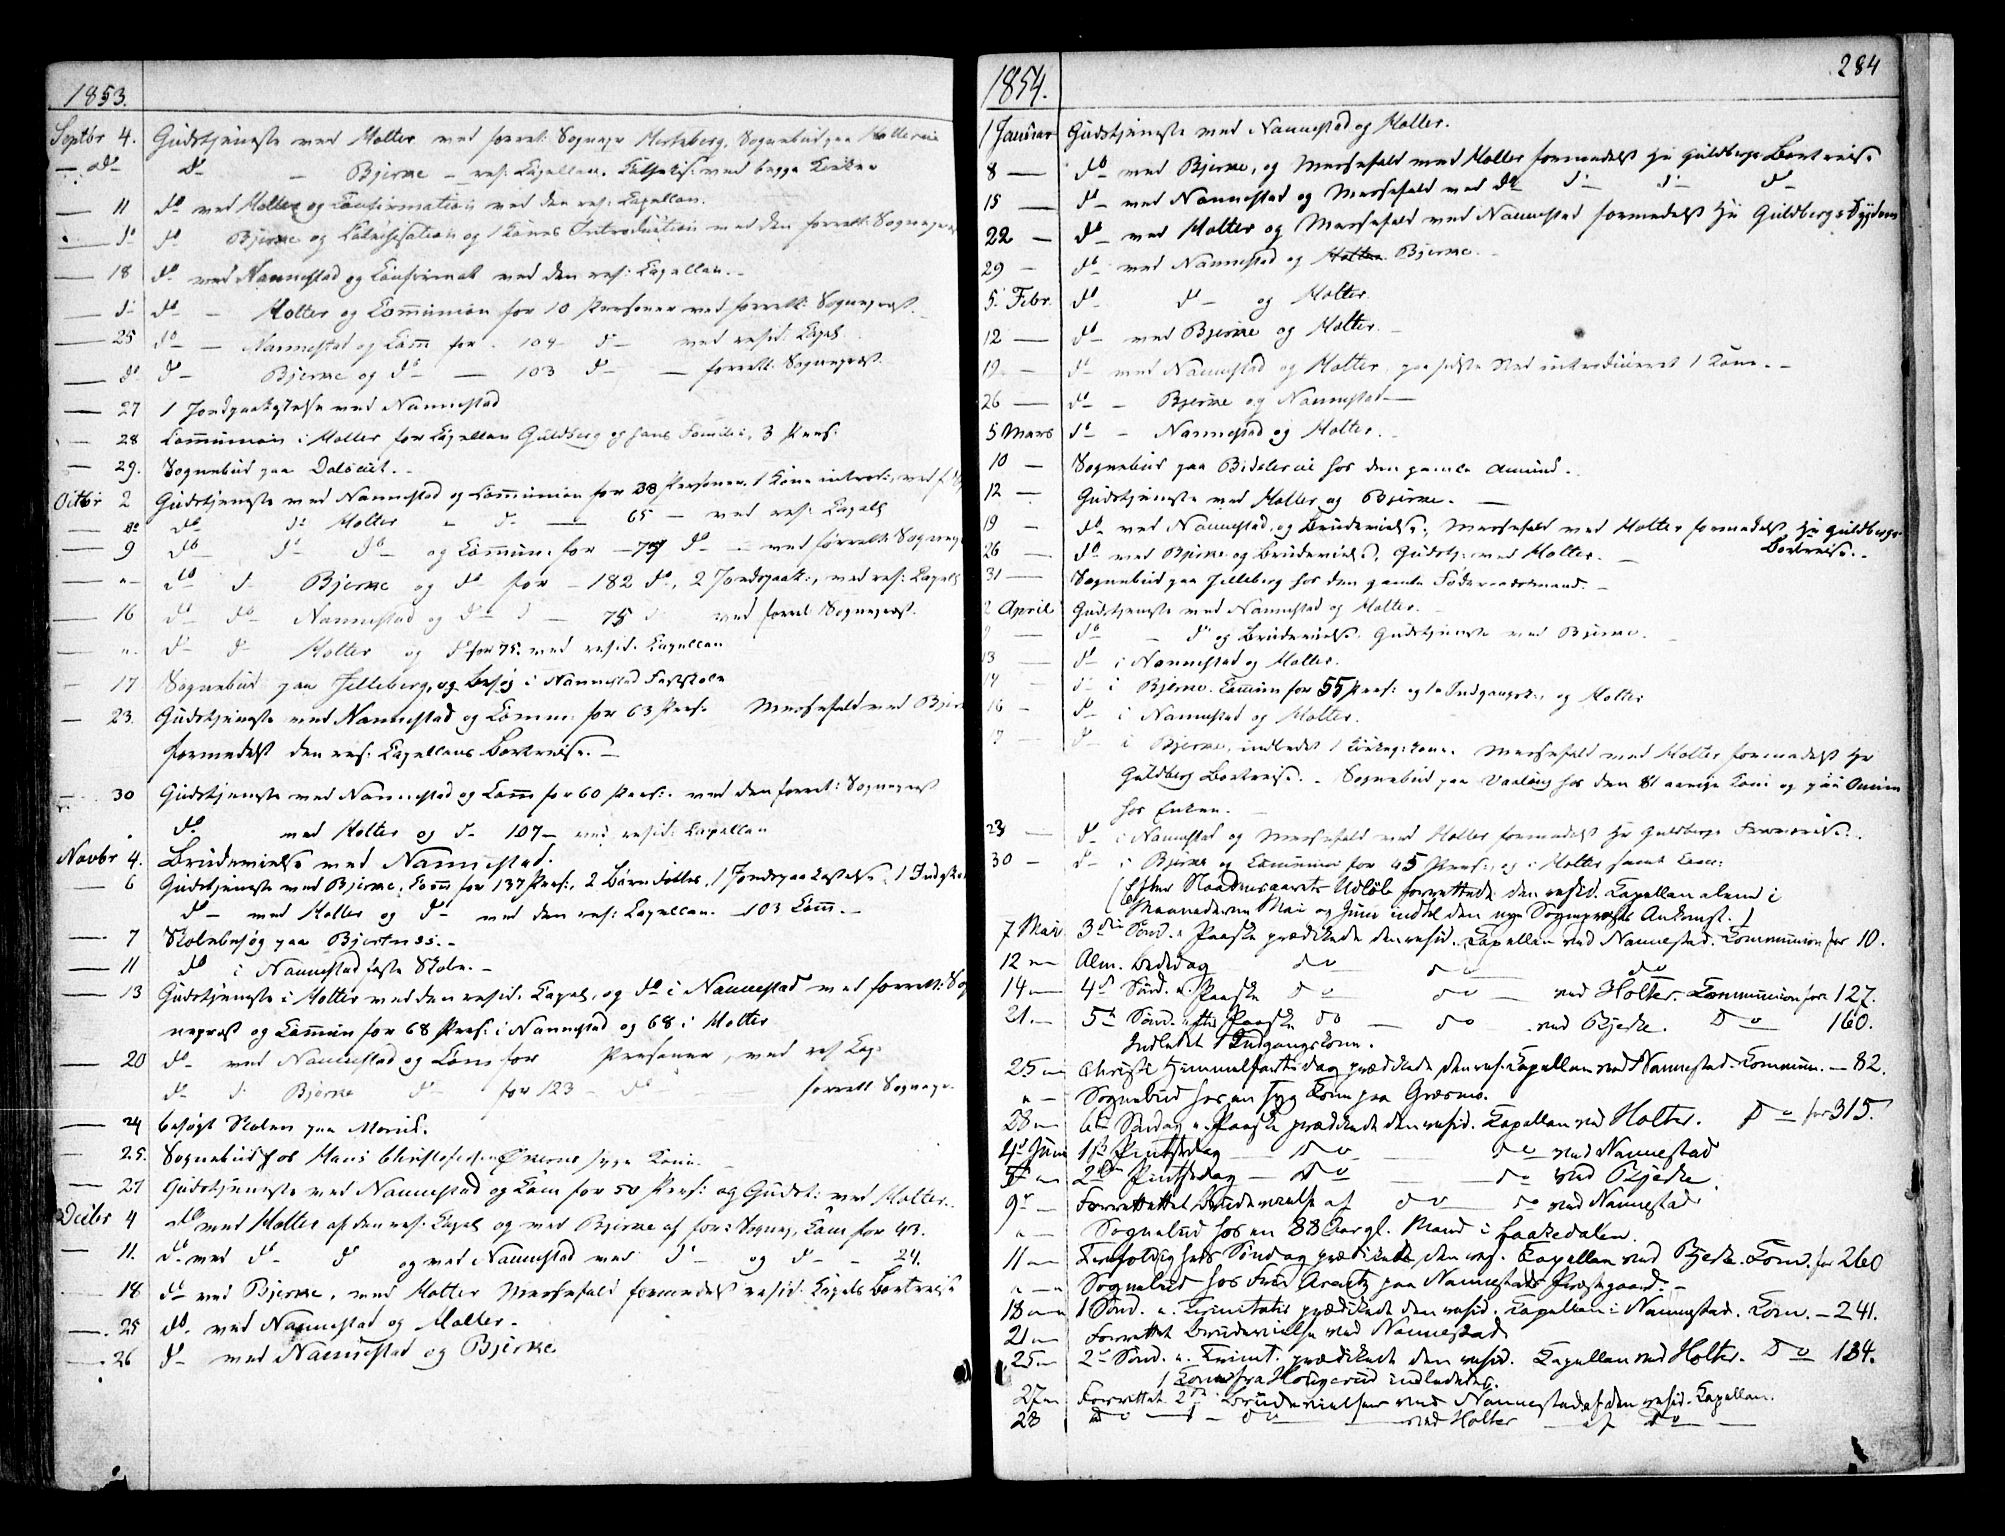 1853.
Septbr 4. Gudstjeneste ved Holter ved forrett: Sognepr Hertzberg, Sognebud paa
— do — do — Bjerke — res: Capellan. Cathekis: ved begge Kirker
— 11 do ved Holter og Confirmation ved den res: Capellan.
— do do Bjerke og Catechisation og 1 Kones Introduction ved den forrett: Sognepræst
— 18 do ved Nannestad og Confirmat ved den res: Capellan.
— d: do — Holter og Communion for 10 Personer ved forrett: Sognepræst.
— 25 do — Nannestad og Comm for 104 do ved resid: Capel
— do do — Bjerke og do — 103 do — forrett: Sognepræst.
— 27 1 Jordpaakastelse ved Nannestad
— 28 Communion i Holter for Capellan Guldberg og hans Familie, 3 Pers:
— 29. Sognebud paa
Octbr 2 Gudstjeneste ved Nannestad og Communion for 38 Personer. 1 Kone introd:, ved
— do do d: Holter — do — 65 — ved res: Capell
— 9 do d: do og Commun: for — 79 do — ved forrett: Sognepr
— " — do d: Bjerke og do for — 182 do, 2 Jordpaak:, ved res: Capell
— 16 do do Nannestad og do d — 75 d ved forret: Sognepræst.
— " do do Holter og do for 75. ved resid: Capellan
— 17 Sognebud paa Jelleberg, og besøg i Nannestad Fastskole
— 23. Gudstjeneste ved Nannestad og Comm: for 63 Pers: Messefald ved Bjerke
formedelst den res: Capellans Bortreise. —
— 30 Gudstjeneste ved Nannestad og Comm for 60 Pers:. ved den forret: Sognepræst
do ved Holter og do 107 — ved resid: Capellan
Novbr 4. Brudevielse ved Nannestad.
— 6 Gudstjeneste ved Bjerke, Comm for 137 Pers:, 2 Børn døbtes, 1 Jordpaakastelse, 1
do — ved Holter og do — ved den res: Capellan. — 103 Comm. —
— 7 Skolebesøg paa Bjertnes. —
— 11 do i Nannestad faste Skole. —
— 13 Gudstjeneste i Holter ved den resid. Capel, og do i Nannestad ved forrett: Sog
nepræst og Commun for 68 Pers: i Nannestad og 68 i Holter
— 20 do — ved Nannestad og Com for Personer, ved res Cap:
do d: Bjerke do — for 123 — do — forrett Sognepr.
— 24 besøgt Skolen paa
— 25. Sognebud hos Hans Christophersen syge Kone.
— 27 Gudstjeneste ved Nannestad og Com for 50 Pers: og Gudst: ved Holter.
Decbr 4 do ved Holter af den res: Capel og ved Bjerke af for: Sognepr, Com for 43.
— 11. do ved do — do og ved Nannestad ved do — og do — — 24.
— 18 do ved Bjerke, ved Holter Messefald formedelst resid: Capels Bortreise
— 25 do. ved Nannestad og Holter. —
— 26 do — ved Nannestad og Bjerke
284
1854.
1 Januar Gudstjeneste ved Nannestad og Holter.
8 — do — ved Bjerke, og Messefald ved Holter formedelst Hr Guldbergs Bortreise
15 — do — ved Nannestad og Messefald ved do do — do — do —
22 — do — ved Holter og Messefald ved Nannestad formedelst Hr Guldbergs Sygdom
29 — do — ved Nannestad og Holter Bjerke.
5. Febr. do do — og Holter
12 — do — ved Bjerke og Holter. —
19 — do — ved Nannestad og Holter, paa sidste Sted introduceret 1 Kone. —
26 — do — Bjerke og Nannestad —
5 Mars do — Nannestad og Holter.
10 — Sognebud paa hos den gamle Amund. —
12 — Gudstjeneste ved Holter og Bjerke. —
19 — do ved Nannestad, og Brudevielse; Messefald ved Holter formedelst Hr Guldbergs
Bortreise. —
26 — do ved Bjerke og Brudevielse, Gudstj: ved Holter. —
31 — Sognebud paa Jelleberg hos den gamle Føderaadsmand. —
2 April Gudstjeneste ved Nannestad og Holter. —
9 — do — do og Brudevielse. Gudstjeneste ved Bjerke.
13 — do — i Nannestad og Holter.
14 — do i Bjerke. Commun for 55 Pers: og 1 Indgangsk:, og Holter
16 — do i Nannestad og Holter.
— do — i Bjerke, indledet 1 Kirkeg: kone. Messefald ved Holter formedelst Hr
Guldberg Bortreise. — Sognebud paa hos den 81 aarige Kone og paa
hos Enken. —
23 — do — i Nannestad og Messefald ved Holter formedelst Hr Guldbergs
30 — do — i Bjerke og Communion for 45 Pers:, og i Holter samt Com:
(Efter Naadensaarets Udløb forrettede den resid. Capellan alene i
Maanederne Mai og Juni indtil den nye Sognepræsts Ankomst.)
7 Mai 3die Sønd. e. Paaske prædikede den resid. Capellan ved Nannestad. Communion for 10.
12 " — Alm. Bededag do do — do
14 — 4de Sønd. e. Paaske do do — ved Holter. Communion for 127.
21. — 5te Sønd. efter Paaske do — do — ved Bjerke. do — 160.
Indledet 1 Indgangskone.
25 — Christi Himmelfartsdag prædikede den res. Capellan ved Nannestad. Communion. — 82.
" — Sognebud hos en syg Kone paa Græsmo.
28 — 6te Søndag e. Paaske prædikede den resid. Capellan ved Holter. do — for 315.
4de Juni 1ste Pintsedag — do — do ved Nannestad
5te " 2den Pintsedag — do — do — ved Bjerke.
9de — Forrettet Brudevielse af do — do ved Nannestad
" — Sognebud hos en 88 Aar gl. Mand i Laakedalen.
11 — Trefoldigheds Søndag prædikede den res. Capellan ved Bjerke. Com. for 260
" — Sognebud hos Fru Arentz paa Nannestads Præstegaard. —
18 — 1 Sønd. e. Trinitatis prædikede den resid. Capellan i Nannestad. Com. — 241.
21 — Forrettet Brudevielse ved Nannestad
25 — 2den Sønd. e. Trinit. prædikede den resid. Capellan ved Holter. do 134.
1 Kone fra indlededes.
27 — Forrettet 2de Brudevielser ved Nannestad af den resid. Capellan.
28 do — 1 — do — ved Holter — af do —